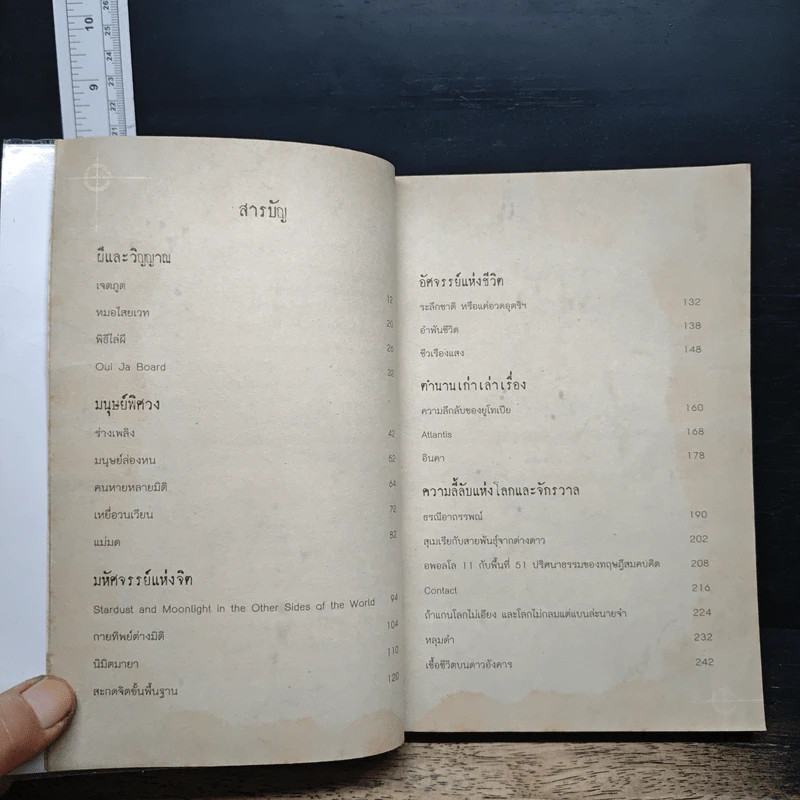 10
9
26
25
24
23
22
21
สารบัญ
ผีและวิญญาณ
เจตภูต 12
หมอไสยเวท 20
พิธีไล่ผี 26
Oui Ja Board 32
มนุษย์พิศวง
ร่างเพลิง 42
มนุษย์ล่องหน 52
คนหายหลายมิติ 64
เหยื่อวนเวียน 72
แม่มด 82
มหัศจรรย์แห่งจิต
Stardust and Moonlight in the Other Sides of the World 94
กายทิพย์ต่างมิติ 104
นิมิตมายา 110
สะกดจิตขั้นพื้นฐาน 120
อัศจรรย์แห่งชีวิต
ระลึกชาติ หรือแค่อวดอุตริฯ 132
อำพันชีวิต 138
ชีวเรืองแสง 148
ตำนานเก่าเล่าเรื่อง
ความลึกลับของยูโทเปีย 160
Atlantis 168
อินคา 178
ความลี้ลับแห่งโลกและจักรวาล
ธรณีอาถรรพณ์ 190
สุเมเรียกับสายพันธุ์จากต่างดาว 202
อพอลโล 11 กับพื้นที่ 51 ปริศนาธรรมของทฤษฎีสมคบคิด 208
Contact 216
ถ้าแกนโลกไม่เอียง และโลกไม่กลมแต่แบนล่ะนายจ๋า 224
หลุมดำ 232
เชื้อชีวิตบนดาวอังคาร 242